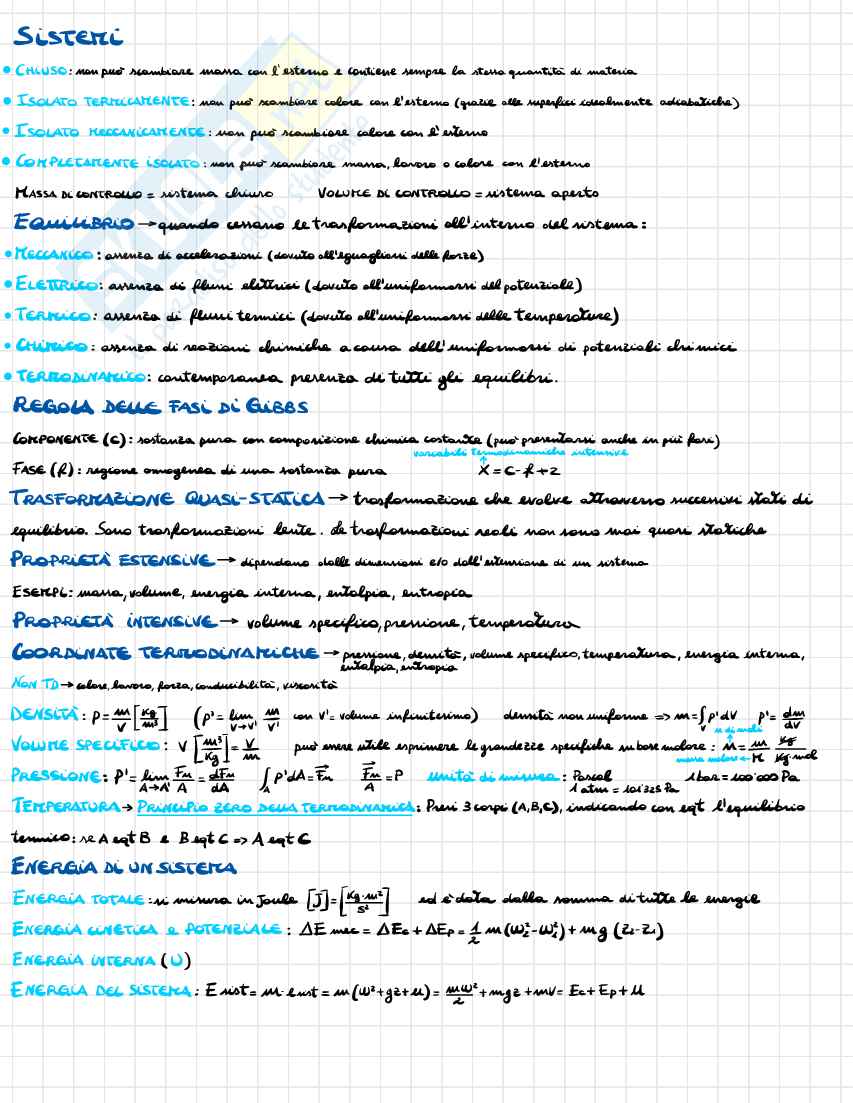 SISTEMI
• CHIUSO: non può scambiare massa con l'esterno e contiene sempre la stessa quantità di materia
• ISOLATO TERMICAMENTE: non può scambiare calore con l'esterno (grazie alle superfici idealmente adiabatiche)
• ISOLATO MECCANICAMENTE: non può scambiare calore con l'esterno
• COMPLETAMENTE ISOLATO: non può scambiare massa, lavoro o calore con l'esterno
MASSA DI CONTROLLO = sistema chiuso VOLUME DI CONTROLLO = sistema aperto
EQUILIBRIO → quando cessano le trasformazioni all'interno del sistema:
• MECCANICO: assenza di accelerazioni (dovuto all'eguagliarsi delle forze)
• ELETTRICO: assenza di flussi elettrici (dovuto all'uniformarsi del potenziale)
• TERMICO: assenza di flussi termici (dovuto all'uniformarsi delle temperature)
• CHIMICO: assenza di reazioni chimiche a causa dell'uniformarsi di potenziali chimici
• TERMODINAMICO: contemporanea presenza di tutti gli equilibri.
REGOLA DELLE FASI DI GIBBS
COMPONENTE (C): sostanza pura con composizione chimica costante (può presentarsi anche in più fasi)
variabili termodinamiche intensive
FASE (f): regione omogenea di una sostanza pura X = C - f + 2
TRASFORMAZIONE QUASI-STATICA → trasformazione che evolve attraverso successivi stati di
equilibrio. Sono trasformazioni lente. Le trasformazioni reali non sono mai quasi statiche
PROPRIETÀ ESTENSIVE → dipendono dalle dimensioni e/o dall'estensione di un sistema
ESEMPI: massa, volume, energia interna, entalpia, entropia
PROPRIETÀ INTENSIVE → volume specifico, pressione, temperatura
COORDINATE TERMODINAMICHE → pressione, densità, volume specifico, temperatura, energia interna,
entalpia, entropia
NON TD → calore, lavoro, forza, conducibilità, viscosità
DENSITÀ: ρ = m/V [Kg/m³] (ρ' = lim V→V' m/V' con V' = volume infinitesimo) densità non uniforme => m = ∫V ρ' dV ρ' = dm/dV
n di moli
VOLUME SPECIFICO: V [m³/Kg] = V/m può essere utile esprimere le grandezze specifiche in base molare: ñ = m/M Kg/Kg·mol
massa molare
PRESSIONE: P' = lim A→A' Fn/A = dFn/dA ∫A P' dA = Fn Fn/A = P unità di misura: Pascal 1 bar = 100'000 Pa
1 atm = 101'325 Pa
TEMPERATURA → PRINCIPIO ZERO DELLA TERMODINAMICA: Presi 3 corpi (A,B,C), indicando con eqt l'equilibrio
termico: se A eqt B e B eqt C => A eqt C
ENERGIA DI UN SISTEMA
ENERGIA TOTALE: si misura in Joule [J] = [Kg·m²/s²] ed è data dalla somma di tutte le energie
ENERGIA CINETICA E POTENZIALE: ΔE mec = ΔEc + ΔEp = 1/2 m (ω₂² - ω₁²) + mg (z₂ - z₁)
ENERGIA INTERNA (U)
ENERGIA DEL SISTEMA: E sist = m · e sist = m (ω² + gz + u) = mω²/2 + mgz + mv = Ec + Ep + U